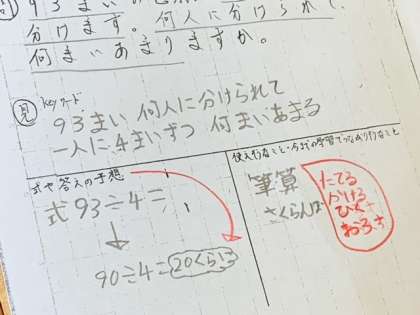 問 93まいの
分けます。何人に分けられて、
何まいあまりますか。
見 keyワード
93まい 何人に分けられて
一人に4まいずつ 何まいあまる
式や答えの予想
式 93÷4=
90÷4=20くらい
使えそうなこと・今までの学習でつながりそうなこと
筆算
さくらんぼ
たてる
かける
ひく
おろす